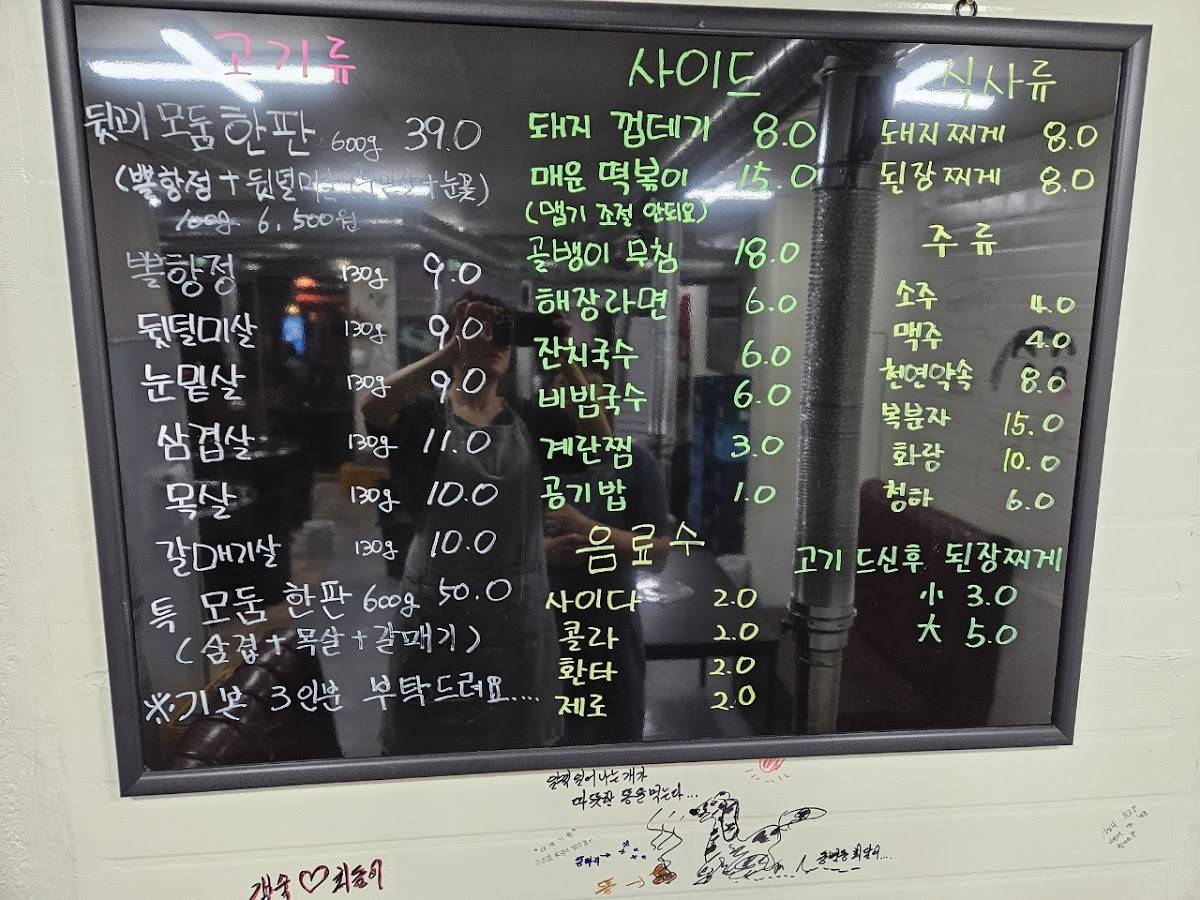 고기류
뒷고기 모둠한판 600g 39.0
(뽈항정 + 뒷덜미살 + 눈밑살 + 눈꽃)
100g 6,500원
뽈항정 130g 9.0
뒷덜미살 130g 9.0
눈밑살 130g 9.0
삼겹살 130g 11.0
목살 130g 10.0
갈매기살 130g 10.0
특 모둠 한판 600g 50.0
(삼겹 + 목살 + 갈매기)
※기본 3인분 부탁드려요....
사이드
돼지 껍데기 8.0
매운 떡볶이 15.0
(맵기 조절 안되요)
골뱅이 무침 18.0
해장라면 6.0
잔치국수 6.0
비빔국수 6.0
계란찜 3.0
공기밥 1.0
음료수
사이다 2.0
콜라 2.0
환타 2.0
제로 2.0
식사류
돼지찌게 8.0
된장찌게 8.0
주류
소주 4.0
맥주 4.0
천연약속 8.0
복분자 15.0
화랑 10.0
청하 6.0
고기 드신후 된장찌게
小 3.0
大 5.0
일찍 일어나는 개가
따뜻한 똥을 먹는다...
똥파리→
똥→